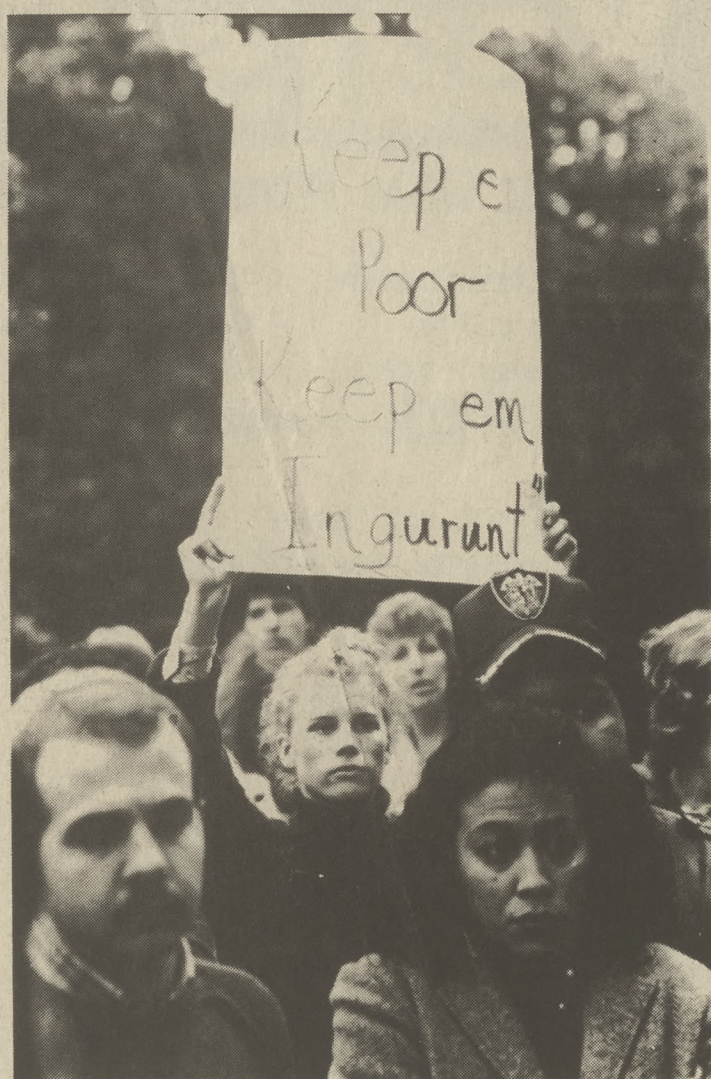 Keep e
Poor
Keep em
Ingurunt"